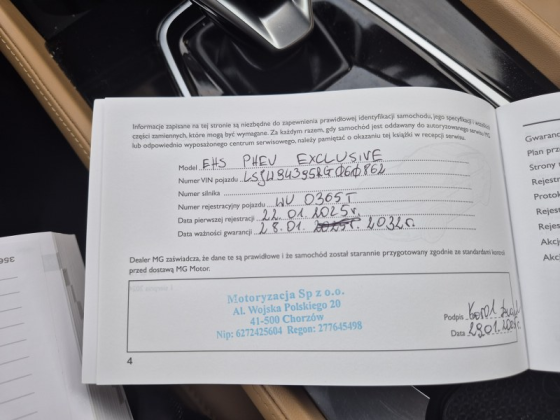 Informacje zapisane na tej stronie są niezbędne do zapewnienia prawidłowej identyfikacji samochodu, jego specyfikacji i
części zamiennych, które mogą być wymagane. Za każdym razem, gdy samochód jest oddawany do autoryzowanego serwisu MG
lub odpowiednio wyposażonego centrum serwisowego, należy pamiętać o okazaniu tej książki w recepcji serwisu.
Model EHS PHEV EXCLUSIVE
Numer VIN pojazdu
Numer silnika
Numer rejestracyjny pojazdu WU 0305T
Data pierwszej rejestracji 22.01.2025r.
Data ważności gwarancji 28.01. 2032r.
Dealer MG zaświadcza, że dane te są prawidłowe i że samochód został starannie przygotowany zgodnie ze standardami kontroli
przed dostawą MG Motor.
Motoryzacja Sp z o.o.
Al. Wojska Polskiego 20
41-500 Chorzów
Nip: 6272425604 Regon: 277645498
Podpis Karol
Data 28.01.2025r.
4
Plan
Strony
Rejestr